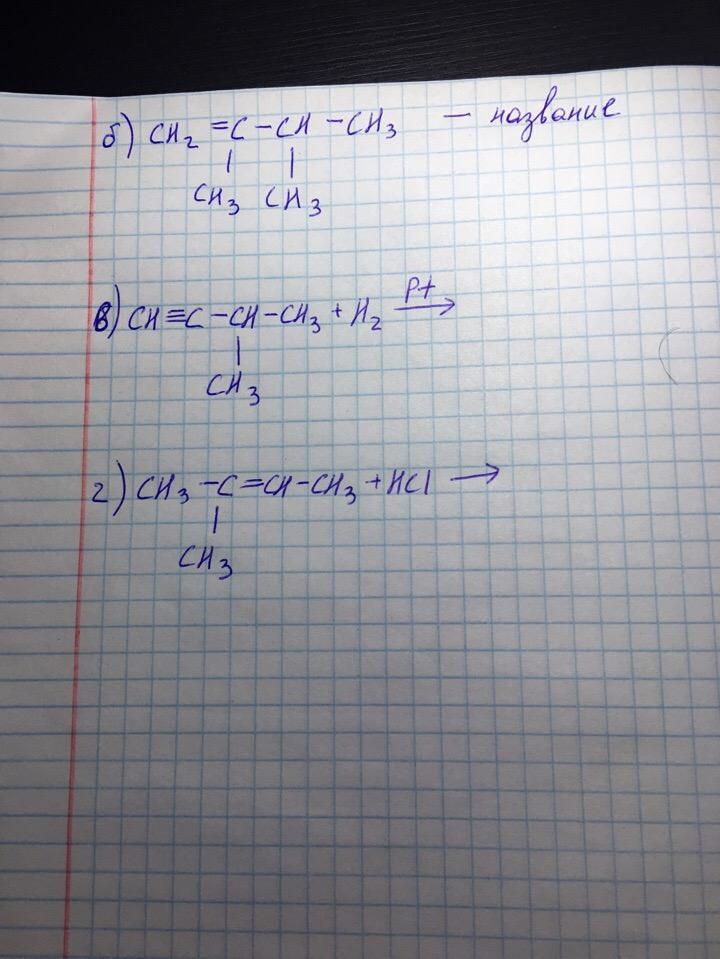 б) CH₂ = C – CH – CH₃ — название
| |
CH₃ CH₃
в) CH ≡ C – CH – CH₃ + H₂ Pt →
|
CH₃
г) CH₃ – C = CH – CH₃ + HCl →
|
CH₃